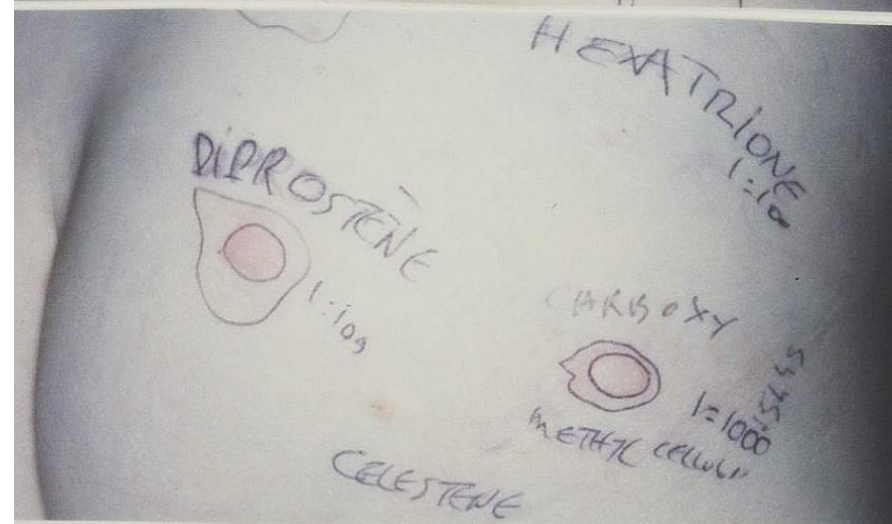 HEXATRIONE
1:10
DiPROSTENE
1:100
CARBOXY
METHYL CELLUL
1:1000
CELESTENE